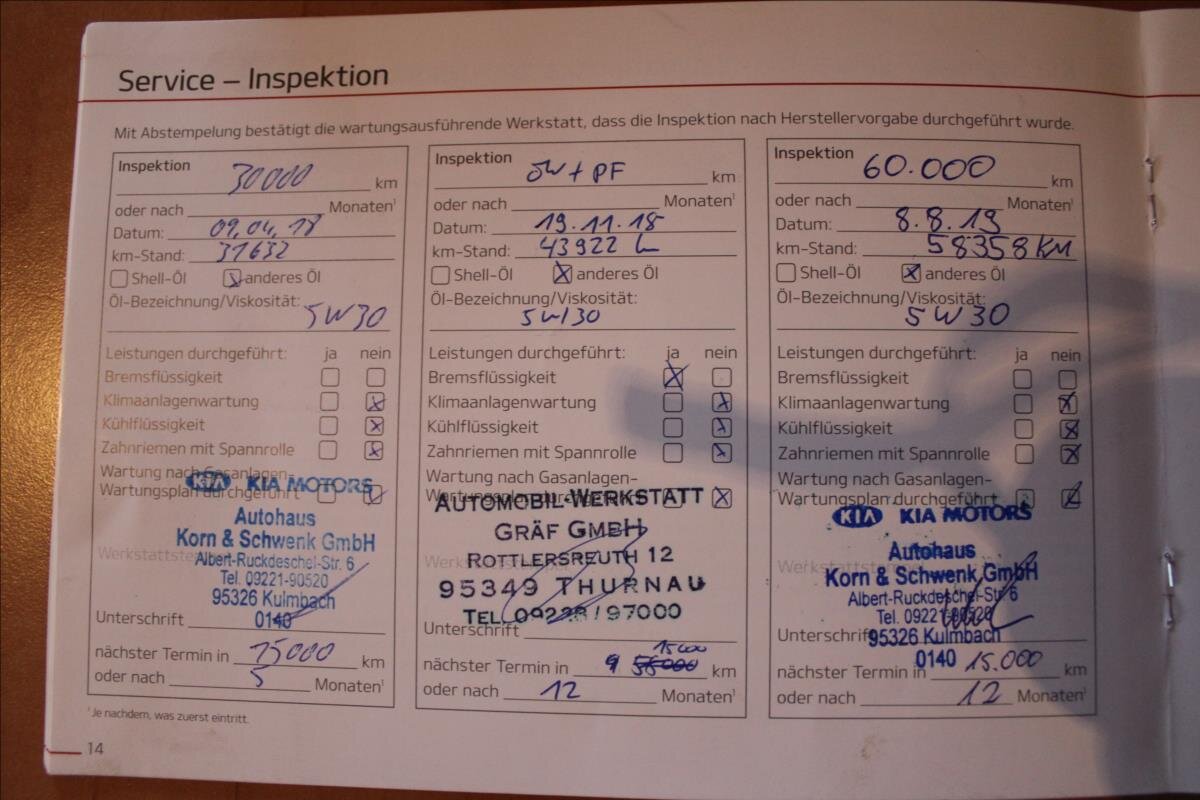 Service – Inspektion
Mit Abstempelung bestätigt die wartungsausführende Werkstatt, dass die Inspektion nach Herstellervorgabe durchgeführt wurde.
Inspektion 30000 km
oder nach Monaten¹
Datum: 09.04.18
km-Stand: 31632
Shell-Öl anderes Öl
Öl-Bezeichnung/Viskosität:
5W30
Leistungen durchgeführt: ja nein
Bremsflüssigkeit
Klimaanlagenwartung
Kühlflüssigkeit
Zahnriemen mit Spannrolle
Wartung nach Gasanlagen-
Wartungsplan durchgeführt
KIA KIA MOTORS
Autohaus
Korn & Schwenk GmbH
Albert-Ruckdeschel-Str. 6
Tel. 09221-90520
95326 Kulmbach
0140
Unterschrift
nächster Termin in 15000 km
oder nach 5 Monaten¹
Inspektion ÖW + PF km
oder nach Monaten¹
Datum: 19.11.18
km-Stand: 43922
Shell-Öl anderes Öl
Öl-Bezeichnung/Viskosität:
5W30
Leistungen durchgeführt: ja nein
Bremsflüssigkeit
Klimaanlagenwartung
Kühlflüssigkeit
Zahnriemen mit Spannrolle
Wartung nach Gasanlagen-
AUTOMOBIL-WERKSTATT
GRÄF GMBH
ROTTLERSREUTH 12
95349 THURNAU
TEL. 09228/97000
Unterschrift
15000
nächster Termin in km
oder nach 12 Monaten¹
Inspektion 60.000 km
oder nach Monaten¹
Datum: 8.8.19
km-Stand: 58358 KM
Shell-Öl anderes Öl
Öl-Bezeichnung/Viskosität:
5W30
Leistungen durchgeführt: ja nein
Bremsflüssigkeit
Klimaanlagenwartung
Kühlflüssigkeit
Zahnriemen mit Spannrolle
Wartung nach Gasanlagen-
Wartungsplan durchgeführt
KIA KIA MOTORS
Autohaus
Korn & Schwenk GmbH
Albert-Ruckdeschel-Str. 6
Tel. 09221-90520
Unterschrift 95326 Kulmbach
0140
nächster Termin in 15.000 km
oder nach 12 Monaten¹
¹ Je nachdem, was zuerst eintritt.
14